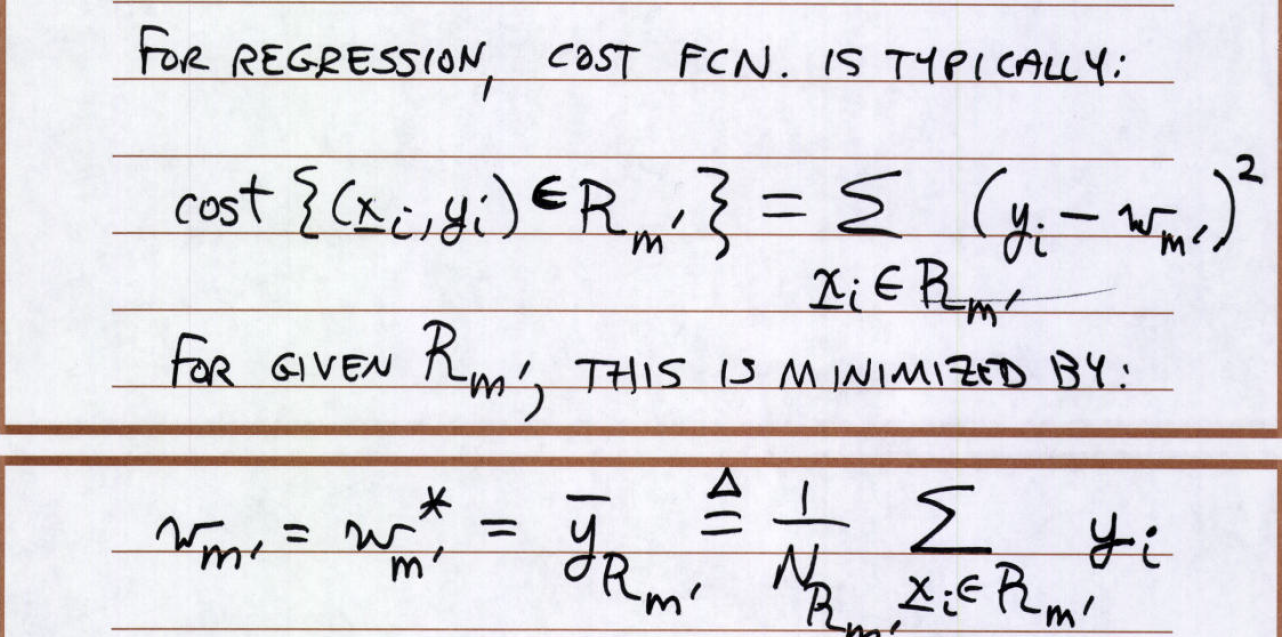 FOR REGRESSION, COST FCN. IS TYPICALLY:
cost {(x̲ᵢ, yᵢ) ∈ R_m'} = Σ_{x̲ᵢ ∈ R_m'} (yᵢ − w_m')²
FOR GIVEN R_m', THIS IS MINIMIZED BY:
w_m' = w_m'^* = ȳ_{R_m'} ≜ 1/N_{R_m'} Σ_{x̲ᵢ ∈ R_m'} yᵢ